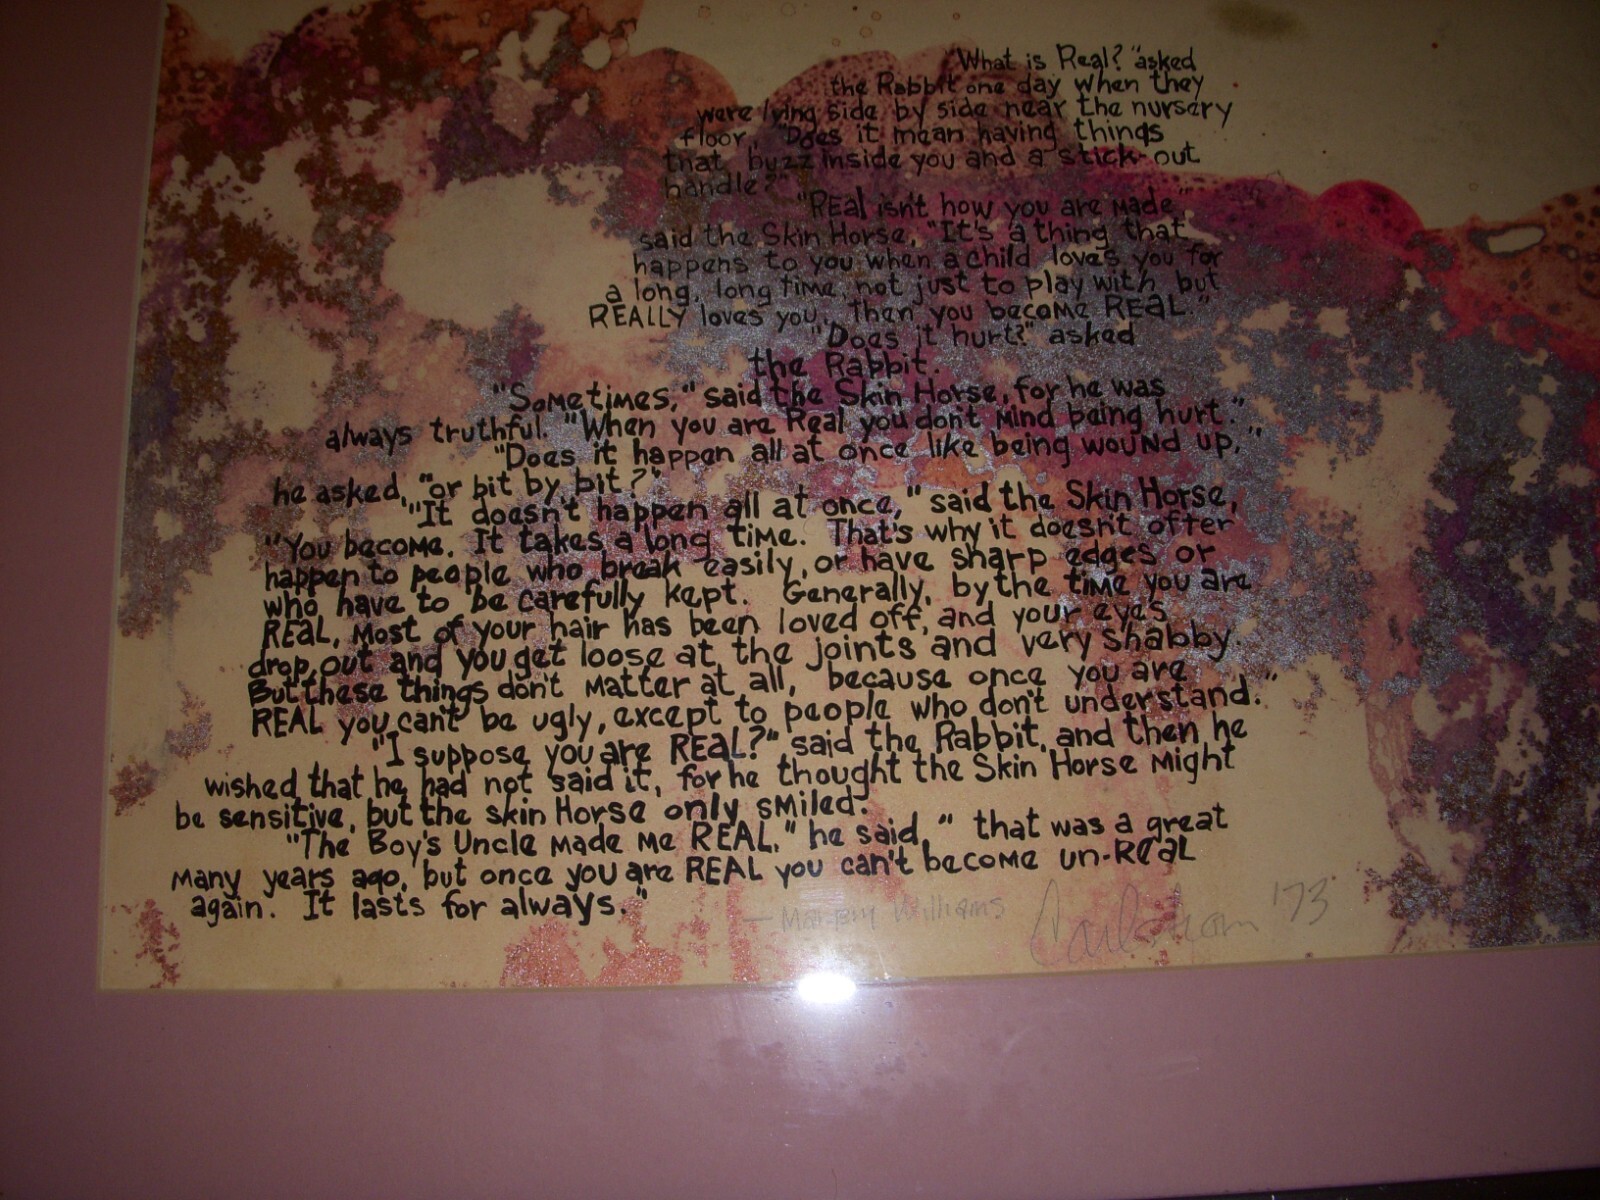 "What is Real?" asked
the Rabbit one day when they
were lying side by side near the nursery
floor, "Does it mean having things
that buzz inside you and a stick-out
handle?"
"REal isn't how you are made"
said the Skin Horse, "It's a thing that
happens to you when a child loves you for
a long, long time, not just to play with, but
REALLY loves you, then you become REAL."
"Does it hurt?" asked
the Rabbit.
"Sometimes," said the Skin Horse, for he was
always truthful. "When you are Real you don't mind being hurt."
"Does it happen all at once like being wound up,"
he asked, "or bit by bit?"
"It doesn't happen all at once," said the Skin Horse,
"You become. It takes a long time. That's why it doesn't often
happen to people who break easily, or have sharp edges or
who have to be carefully kept. Generally, by the time you are
REAL, most of your hair has been loved off, and your eyes
drop out and you get loose at the joints and very shabby.
But these things don't matter at all, because once you are
REAL you can't be ugly, except to people who don't understand."
"I suppose you are REAL?" said the Rabbit, and then he
wished that he had not said it, for he thought the Skin Horse might
be sensitive, but the skin Horse only smiled.
"The Boy's Uncle made me REAL," he said, "that was a great
many years ago, but once you are REAL you can't become un-REAL
again. It lasts for always."
Williams
'73